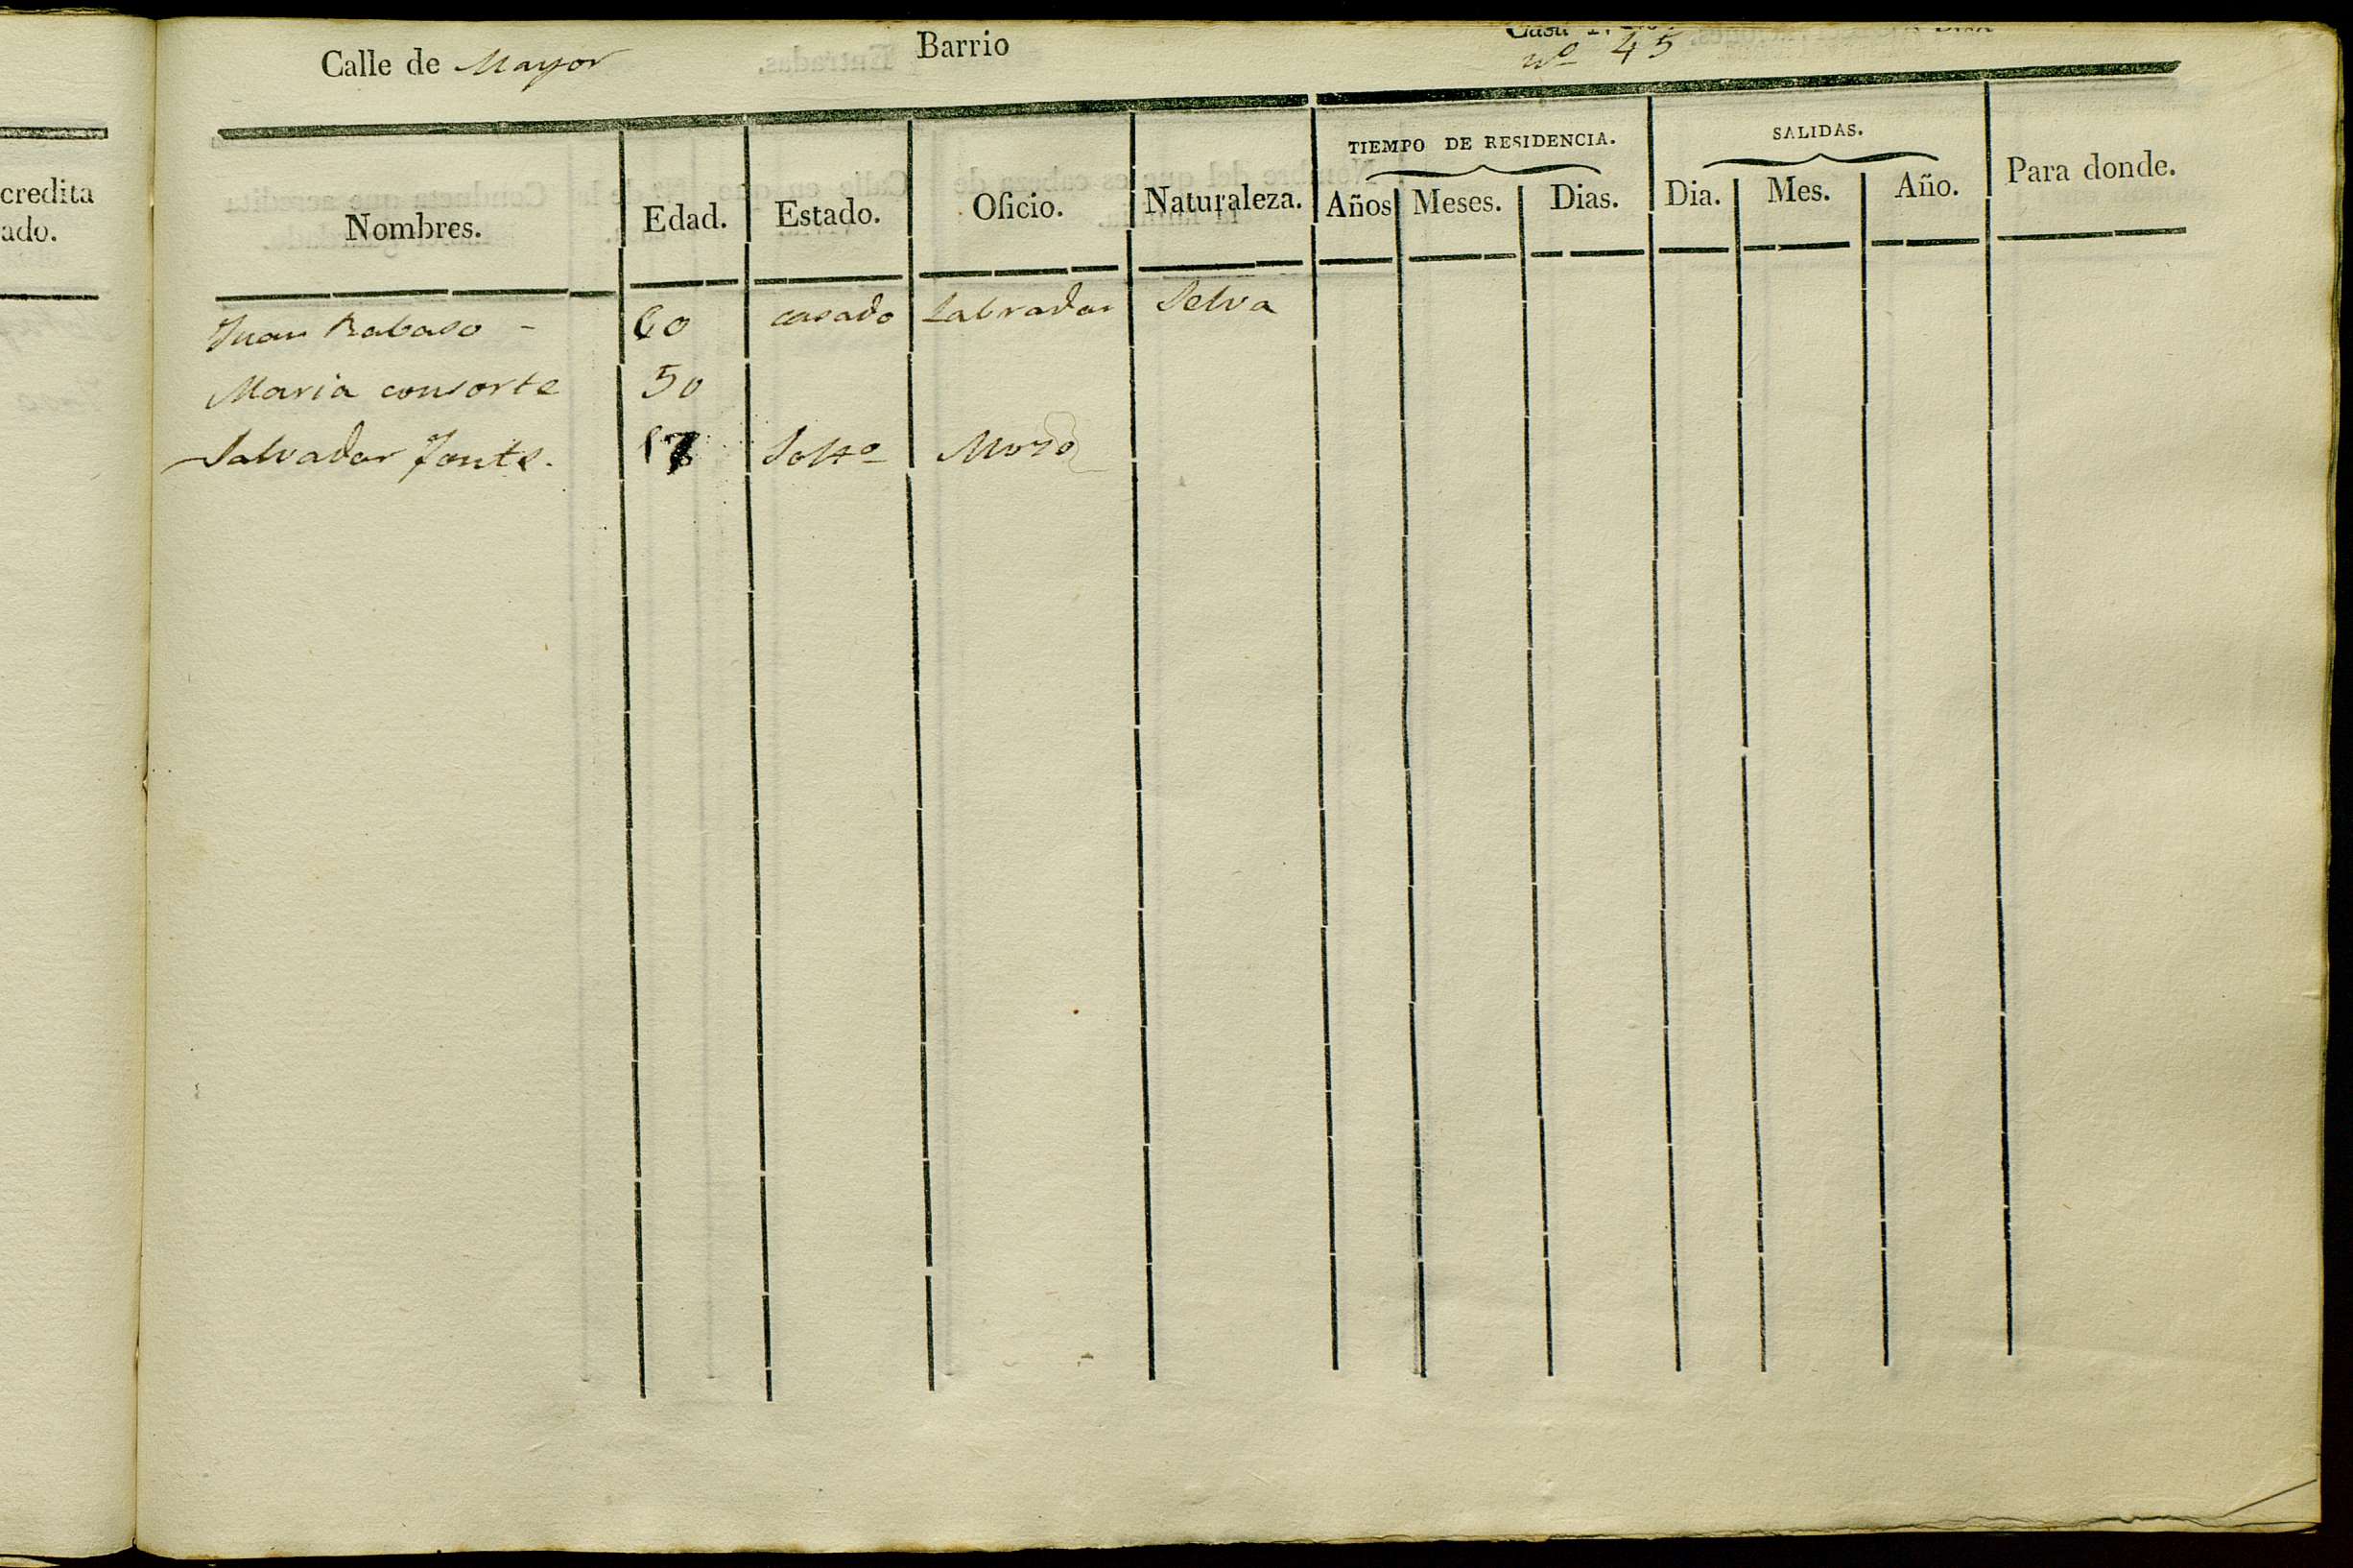 credita
ado.
Calle de Mayor Barrio
nº 45
Nombres. Edad. Estado. Oficio. Naturaleza. TIEMPO DE RESIDENCIA. Años Meses. Dias. SALIDAS. Dia. Mes. Año. Para donde.
Juan Rabaso - 60 casado Labrador Selva
Maria consorte 50
Salvador 17 Solto Mozo